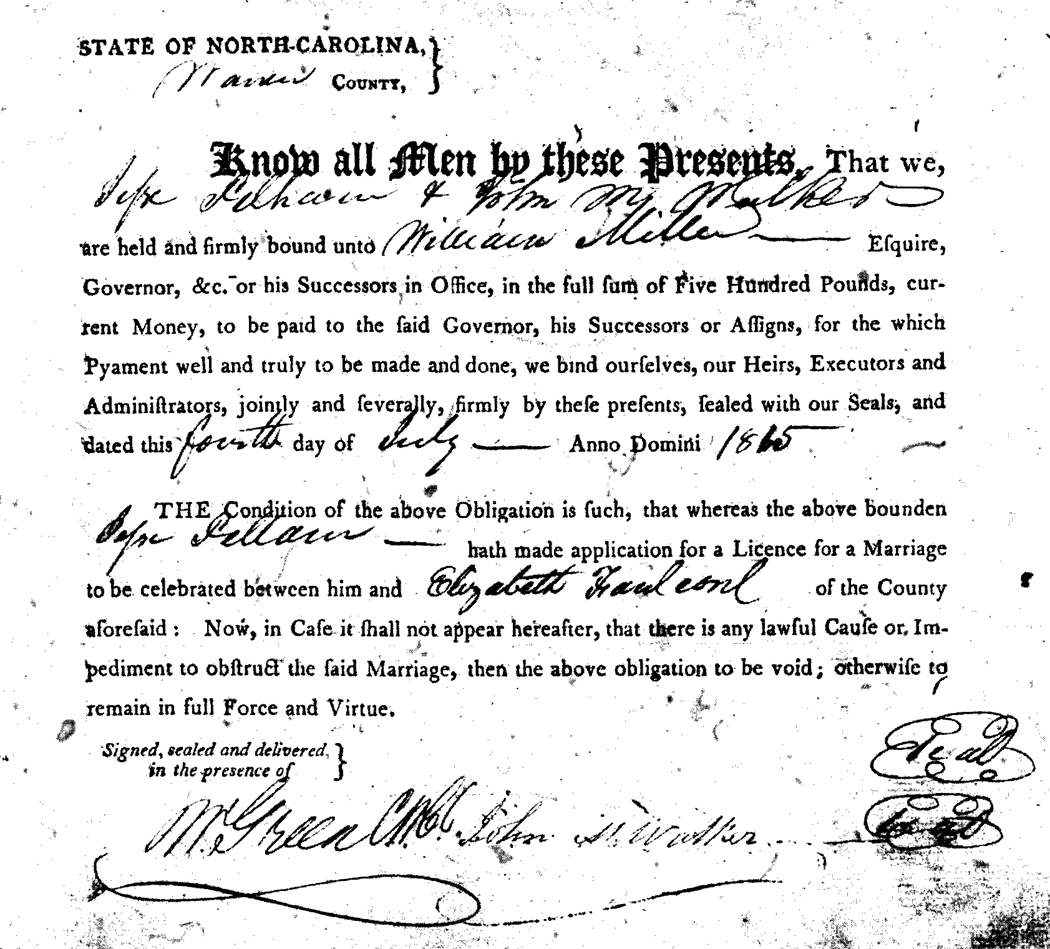 STATE OF NORTH-CAROLINA,
Warren COUNTY,
Know all Men by these Presents, That we,
Pelham & John M. Walker
are held and firmly bound unto William Miller Eſquire,
Governor, &c. or his Succeſſors in Office, in the full ſum of Five Hundred Pounds, cur-
rent Money, to be paid to the ſaid Governor, his Succeſſors or Aſſigns, for the which
Pyament well and truly to be made and done, we bind ourſelves, our Heirs, Executors and
Adminiſtrators, jointly and ſeverally, firmly by theſe preſents, ſealed with our Seals, and
dated this fourth day of July Anno Domini 1815
THE Condition of the above Obligation is ſuch, that whereas the above bounden
hath made application for a Licence for a Marriage
to be celebrated between him and Elizabeth Faulcon of the County
aforeſaid: Now, in Caſe it ſhall not appear hereafter, that there is any lawful Cauſe or Im-
pediment to obſtruct the ſaid Marriage, then the above obligation to be void; otherwiſe to
remain in full Force and Virtue.
Signed, sealed and delivered
in the presence of
Seal
Wm Green John M. Walker Seal